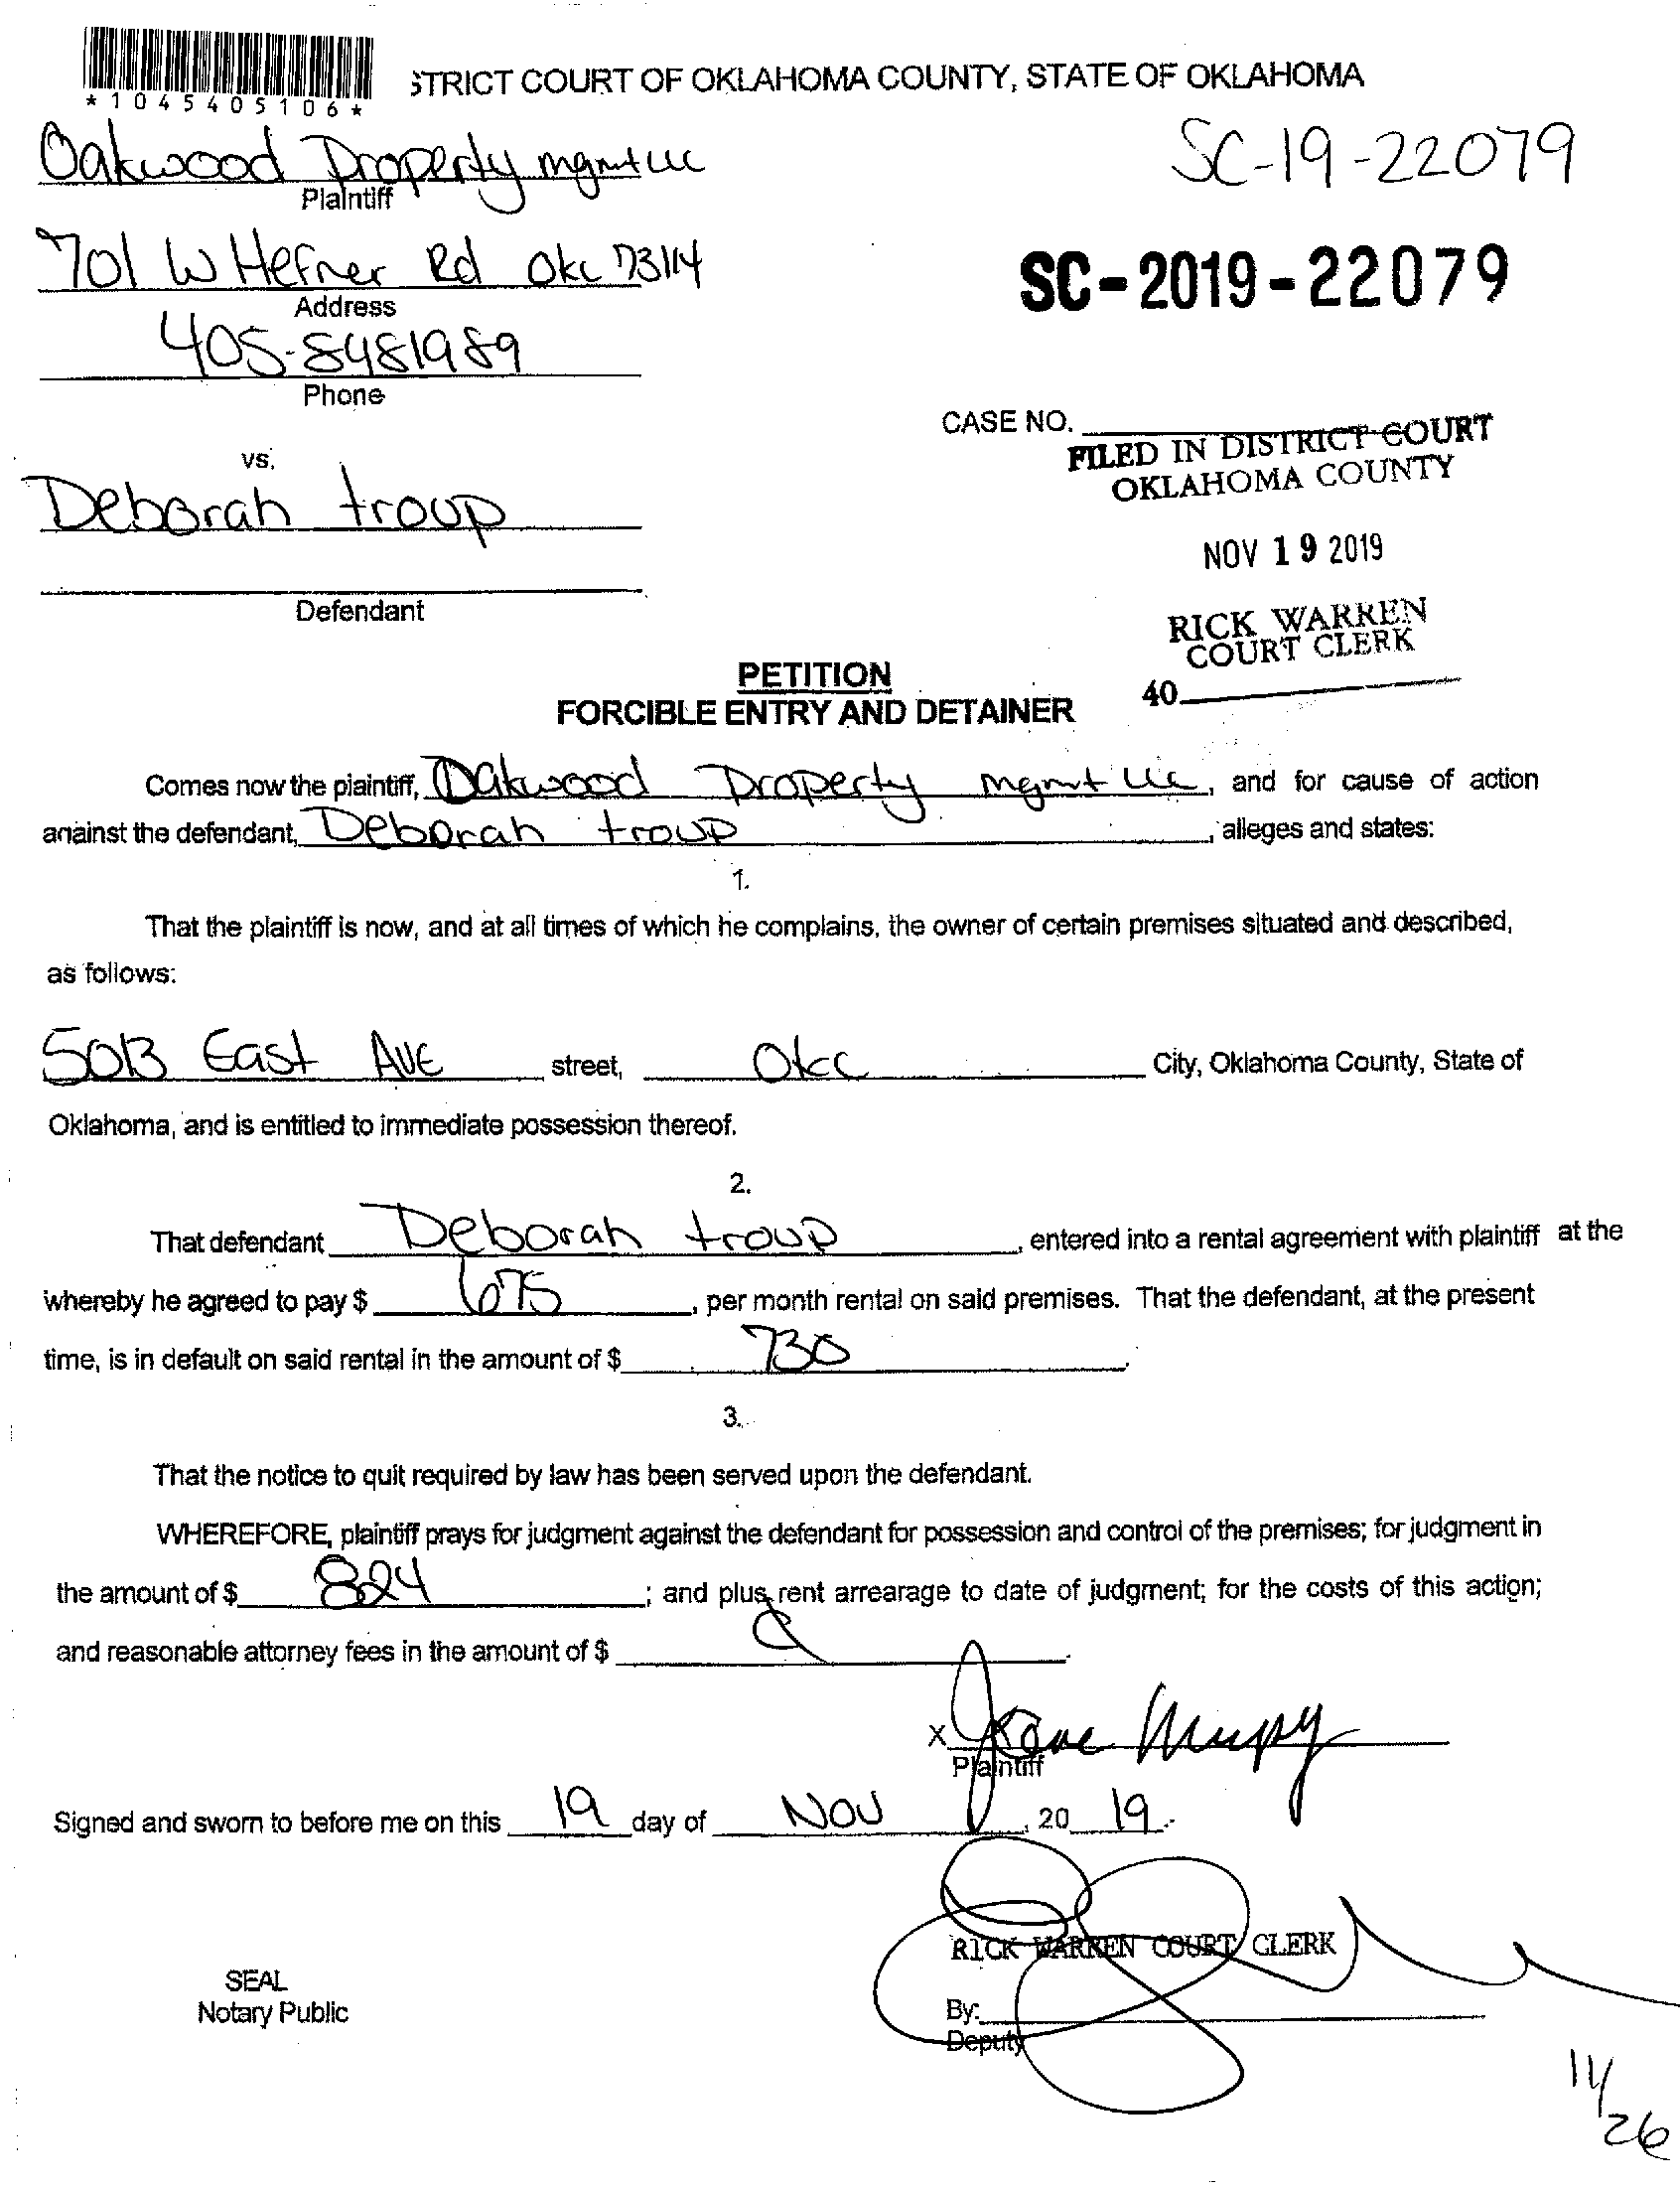 *1045405106*
STRICT COURT OF OKLAHOMA COUNTY, STATE OF OKLAHOMA
Oakwood Property mgmt LLC
Plaintiff
SC-19-22079
701 W Hefner Rd Okc 73114
Address
SC-2019-22079
405-8481989
Phone
CASE NO.
FILED IN DISTRICT COURT
OKLAHOMA COUNTY
vs.
Deborah troup
NOV 19 2019
Defendant
RICK WARREN
COURT CLERK
40
PETITION
FORCIBLE ENTRY AND DETAINER
Comes now the plaintiff, Oakwood Property mgmt LLC, and for cause of action
against the defendant, Deborah troup, alleges and states:
1.
That the plaintiff is now, and at all times of which he complains, the owner of certain premises situated and described,
as follows:
5013 East AVE street, Okc City, Oklahoma County, State of
Oklahoma, and is entitled to immediate possession thereof.
2.
That defendant Deborah troup, entered into a rental agreement with plaintiff at the
whereby he agreed to pay $ 675, per month rental on said premises. That the defendant, at the present
time, is in default on said rental in the amount of $ 730.
3.
That the notice to quit required by law has been served upon the defendant.
WHEREFORE, plaintiff prays for judgment against the defendant for possession and control of the premises; for judgment in
the amount of $ 824; and plus rent arrearage to date of judgment; for the costs of this action;
and reasonable attorney fees in the amount of $
X
Plaintiff
Signed and sworn to before me on this 19 day of Nov, 20 19.
RICK WARREN COURT CLERK
SEAL
Notary Public
By:
Deputy
11/26